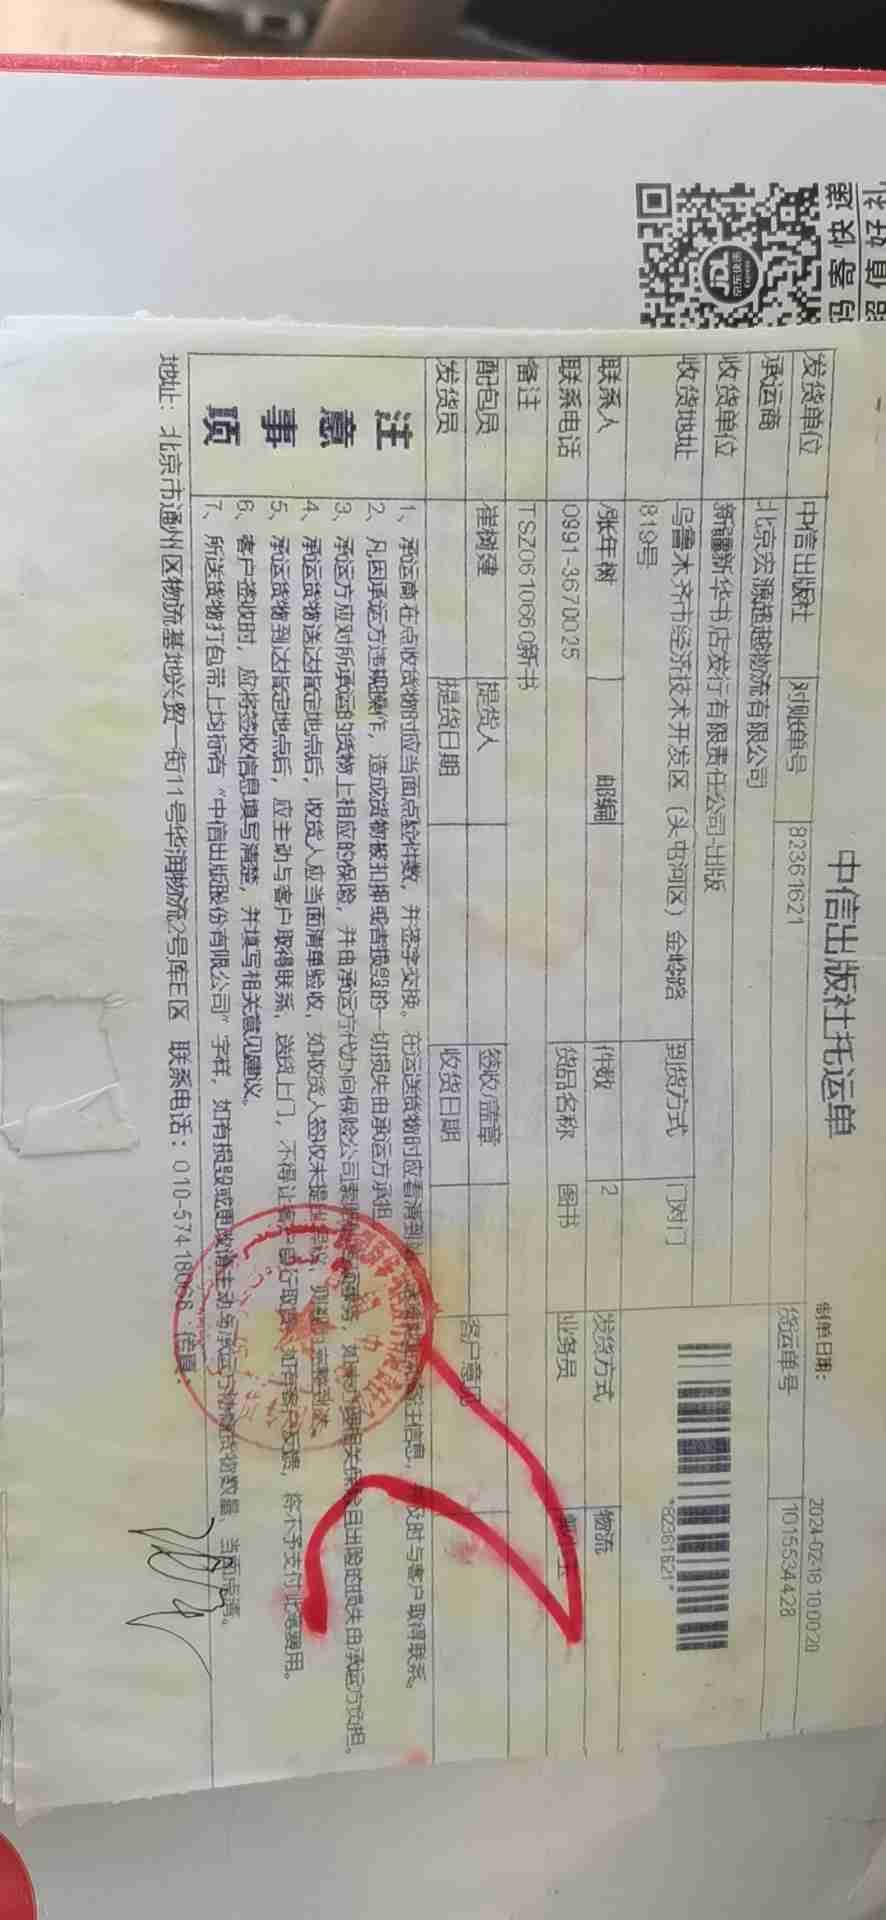 码寄快递
超值好礼
JDL
京东快递
中信出版社托运单
制单日期: 2024-02-18 10:00:20
发货单位 中信出版社 对账单号 82361621 货运单号 10155344428
承运商 北京宏源超越物流有限公司
收货单位 新疆新华书店发行有限责任公司-出版
*82361621*
收货地址 乌鲁木齐市经济技术开发区(头屯河区)金岭路 到货方式 门对门
819号
联系人 张年树 邮编 件数 2 发货方式 物流
联系电话 0991-3670025 货品名称 图书 业务员
备注 TSZ0610660新书
配包员 崔树建 提货人 签收/盖章 客户意见
发货员 提货日期 收货日期
注意事项
1、承运商在点收货物时应当面点验件数,并签字交接。在运送货物时应看清到 注信息, 及时与客户取得联系。
2、凡因承运方违规操作,造成货物被扣押或者损毁的一切损失由承运方承担
3、承运方应对所承运的货物上相应的保险,并由承运方代办向保险公司索赔 如 相关保险且出险的损失由承运方负担。
4、承运货物送达指定地点后,收货人应当面清单验收,如收货人签收未提出异议,则
5、承运货物到达指定地点后,应主动与客户取得联系,送货上门,不得让客户自行取货 如有客户反馈,将不予支付此票费用。
6、客户签收时,应将签收信息填写清楚,并填写相关意见建议。
7、所送货物打包带上均标有“中信出版股份有限公司”字样,如有损毁或更改请主动与承运方 货物数量,当面点清。
地址:北京市通州区物流基地兴贸一街11号华润物流2号库E区 联系电话:010-57418066 传真: